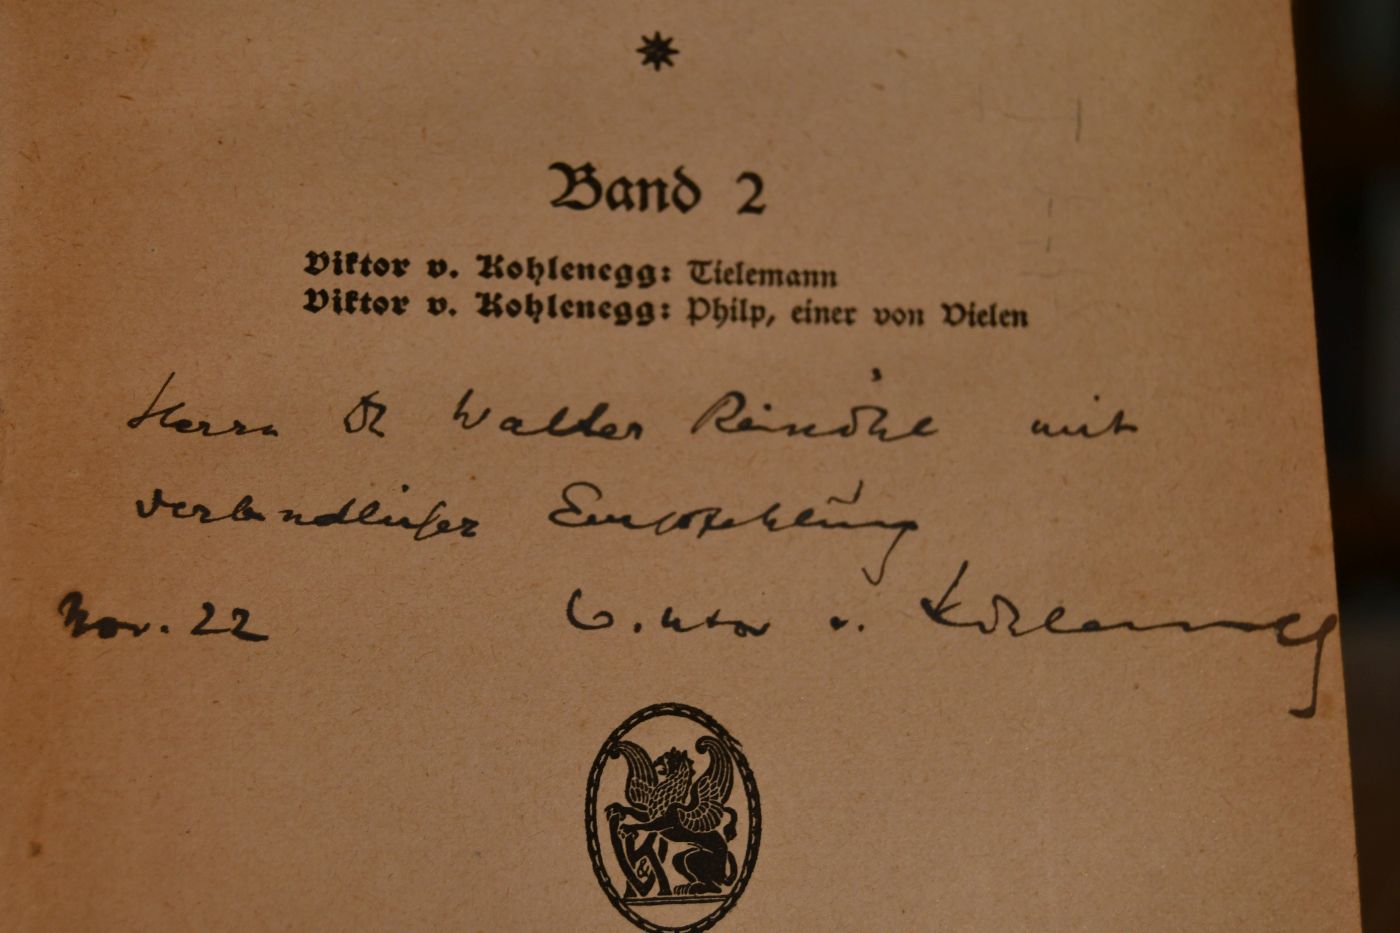 Band 2
Viktor v. Kohlenegg: Tielemann
Viktor v. Kohlenegg: Philp, einer von Vielen
Herrn Dr Walter Reinöhl mit
verbindlicher Empfehlung
Nov. 22 Victor v. Kohlenegg
V & K